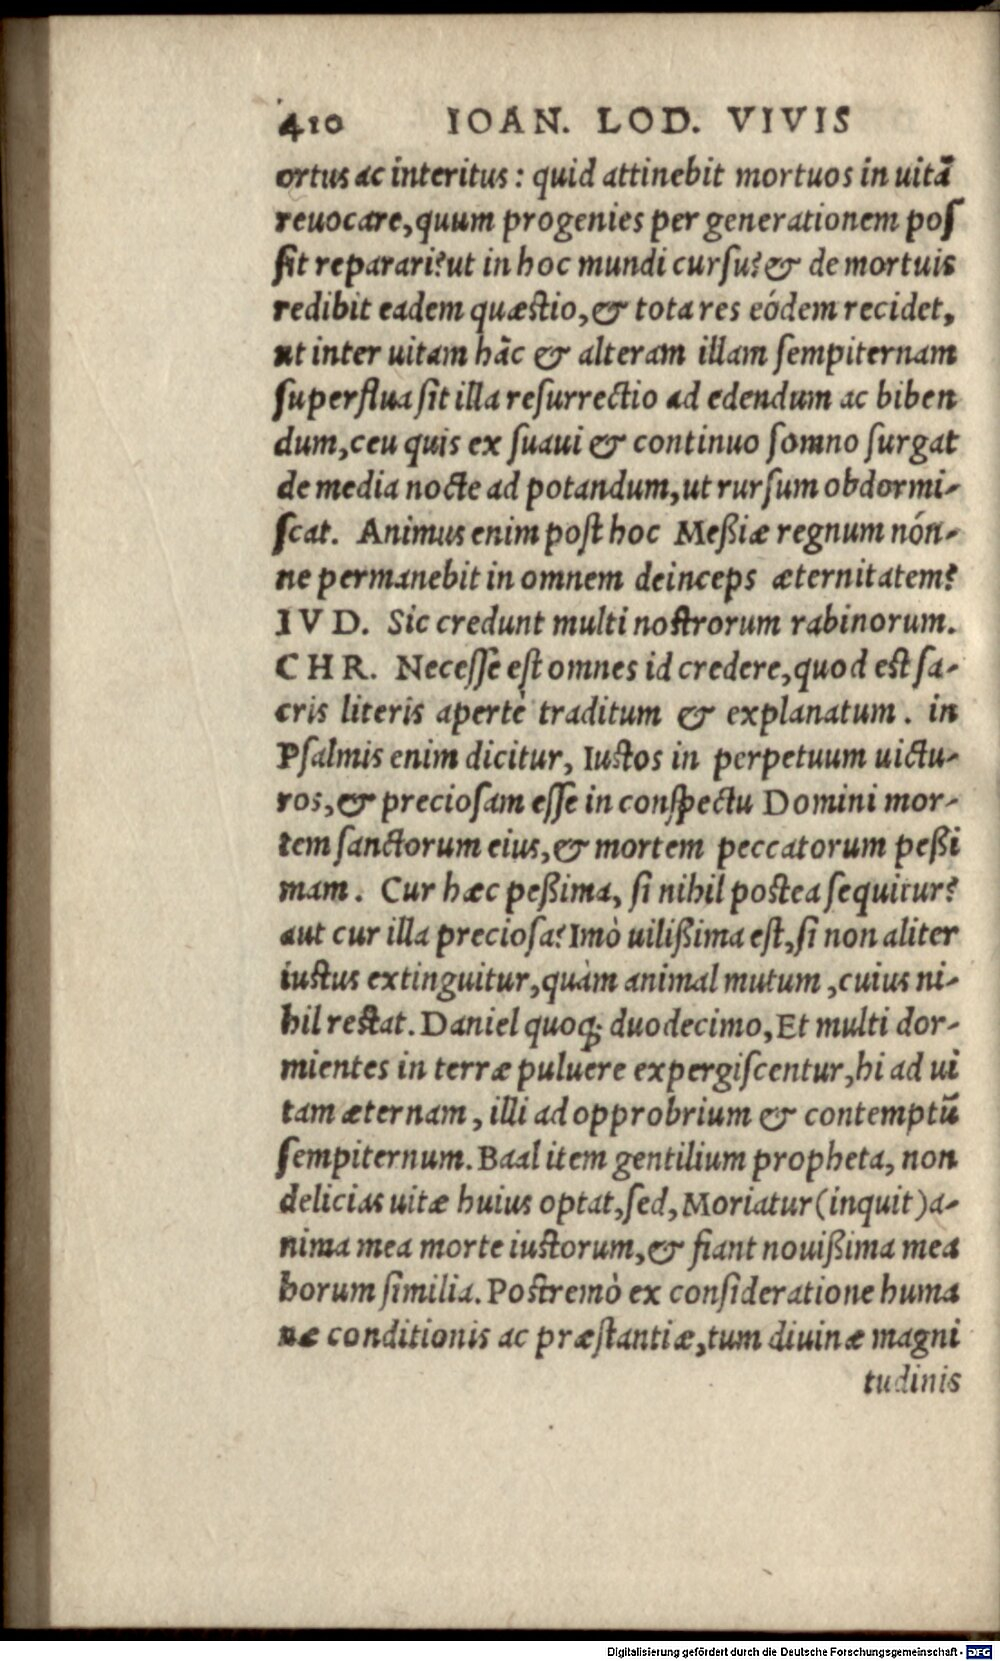 410 IOAN. LOD. VIVIS
ortus ac interitus: quid attinebit mortuos in uitā
reuocare, quum progenies per generationem poſ
ſit reparari? ut in hoc mundi curſu? & de mortuis
redibit eadem quæſtio, & tota res eódem recidet,
ut inter uitam hāc & alteram illam ſempiternam
ſuperflua ſit illa reſurrectio ad edendum ac biben
dum, ceu quis ex ſuaui & continuo ſomno ſurgat
de media nocte ad potandum, ut rurſum obdormi-
ſcat. Animus enim poſt hoc Meßiæ regnum nón-
ne permanebit in omnem deinceps æternitatem?
IVD. Sic credunt multi noſtrorum rabinorum.
CHR. Neceſſe eſt omnes id credere, quod eſt ſa-
cris literis apertè traditum & explanatum. in
Pſalmis enim dicitur, Iuſtos in perpetuum uictu-
ros, & precioſam eſſe in conſpectu Domini mor-
tem ſanctorum eius, & mortem peccatorum peßi
mam. Cur hæc peßima, ſi nihil poſtea ſequitur?
aut cur illa precioſa? Imò uilißima eſt, ſi non aliter
iuſtus extinguitur, quàm animal mutum, cuius ni-
hil reſtat. Daniel quoq; duodecimo, Et multi dor-
mientes in terræ puluere expergiſcentur, hi ad ui
tam æternam, illi ad opprobrium & contemptū
ſempiternum. Baal item gentilium propheta, non
delicias uitæ huius optat, ſed, Moriatur (inquit) a-
nima mea morte iuſtorum, & fiant nouißima mea
horum ſimilia. Poſtremò ex conſideratione huma
næ conditionis ac præſtantiæ, tum diuinæ magni
tudinis
Digitalisierung gefördert durch die Deutsche Forschungsgemeinschaft - DFG